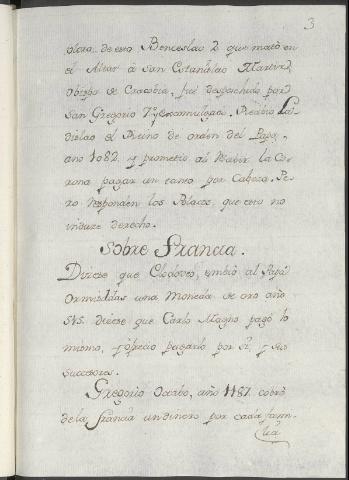 3
otra. de esto Bonceslao 2 que mató en
el Altar à San Estanislao Martir,
Obispo de Cracobia, fue despachido por
San Gregorio 7º y Excomulgado. Recibio La-
dislao el Reino de orden del Papa,
año 1082. y prometio al Recivir la Co-
rona pagar un tanto por Cabeza. Pe-
ro responden los Polacos, que esto no
induze derecho.
Sobre Francia.
Dizese que Clodoveo, embió al Papa
Ormisdas una Moneda de oro año
545. dizese que Carlo Magno pagó lo
mismo, y ofrecio pagarlo por sí, y sus
succesores.
Gregorio Octabo, año 1187. cobró
de la Francia un dinero por cada fami-
lia